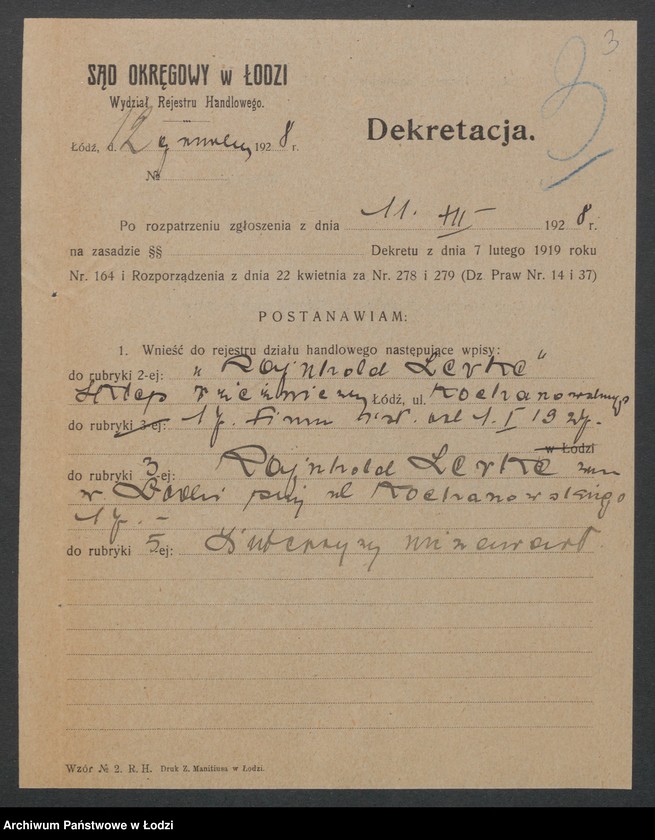 3
SĄD OKRĘGOWY w ŁODZI
Wydział Rejestru Handlowego.
Łódź, d. 12 grudnia 1928 r.
№
Dekretacja.
Po rozpatrzeniu zgłoszenia z dnia 11. XII — 1928 r.
na zasadzie §§ Dekretu z dnia 7 lutego 1919 roku
Nr. 164 i Rozporządzenia z dnia 22 kwietnia za Nr. 278 i 279 (Dz. Praw Nr. 14 i 37)
POSTANAWIAM:
1. Wnieść do rejestru działu handlowego następujące wpisy:
do rubryki 2-ej: „Rajnhold Lerke"
Sklep rzeźniczy Łódź, ul. Kochanowskiego
do rubryki 3-ej: 17. Firma istn. od 1. I 1927.
w Łodzi
do rubryki 3-ej: Rajnhold Lerke zam
w Łodzi przy ul Kochanowskiego
17. –
do rubryki 5-ej: Intercyzy nie zawarł
Wzór № 2. R. H. Druk Z. Manitiusa w Łodzi.
Archiwum Państwowe w Łodzi